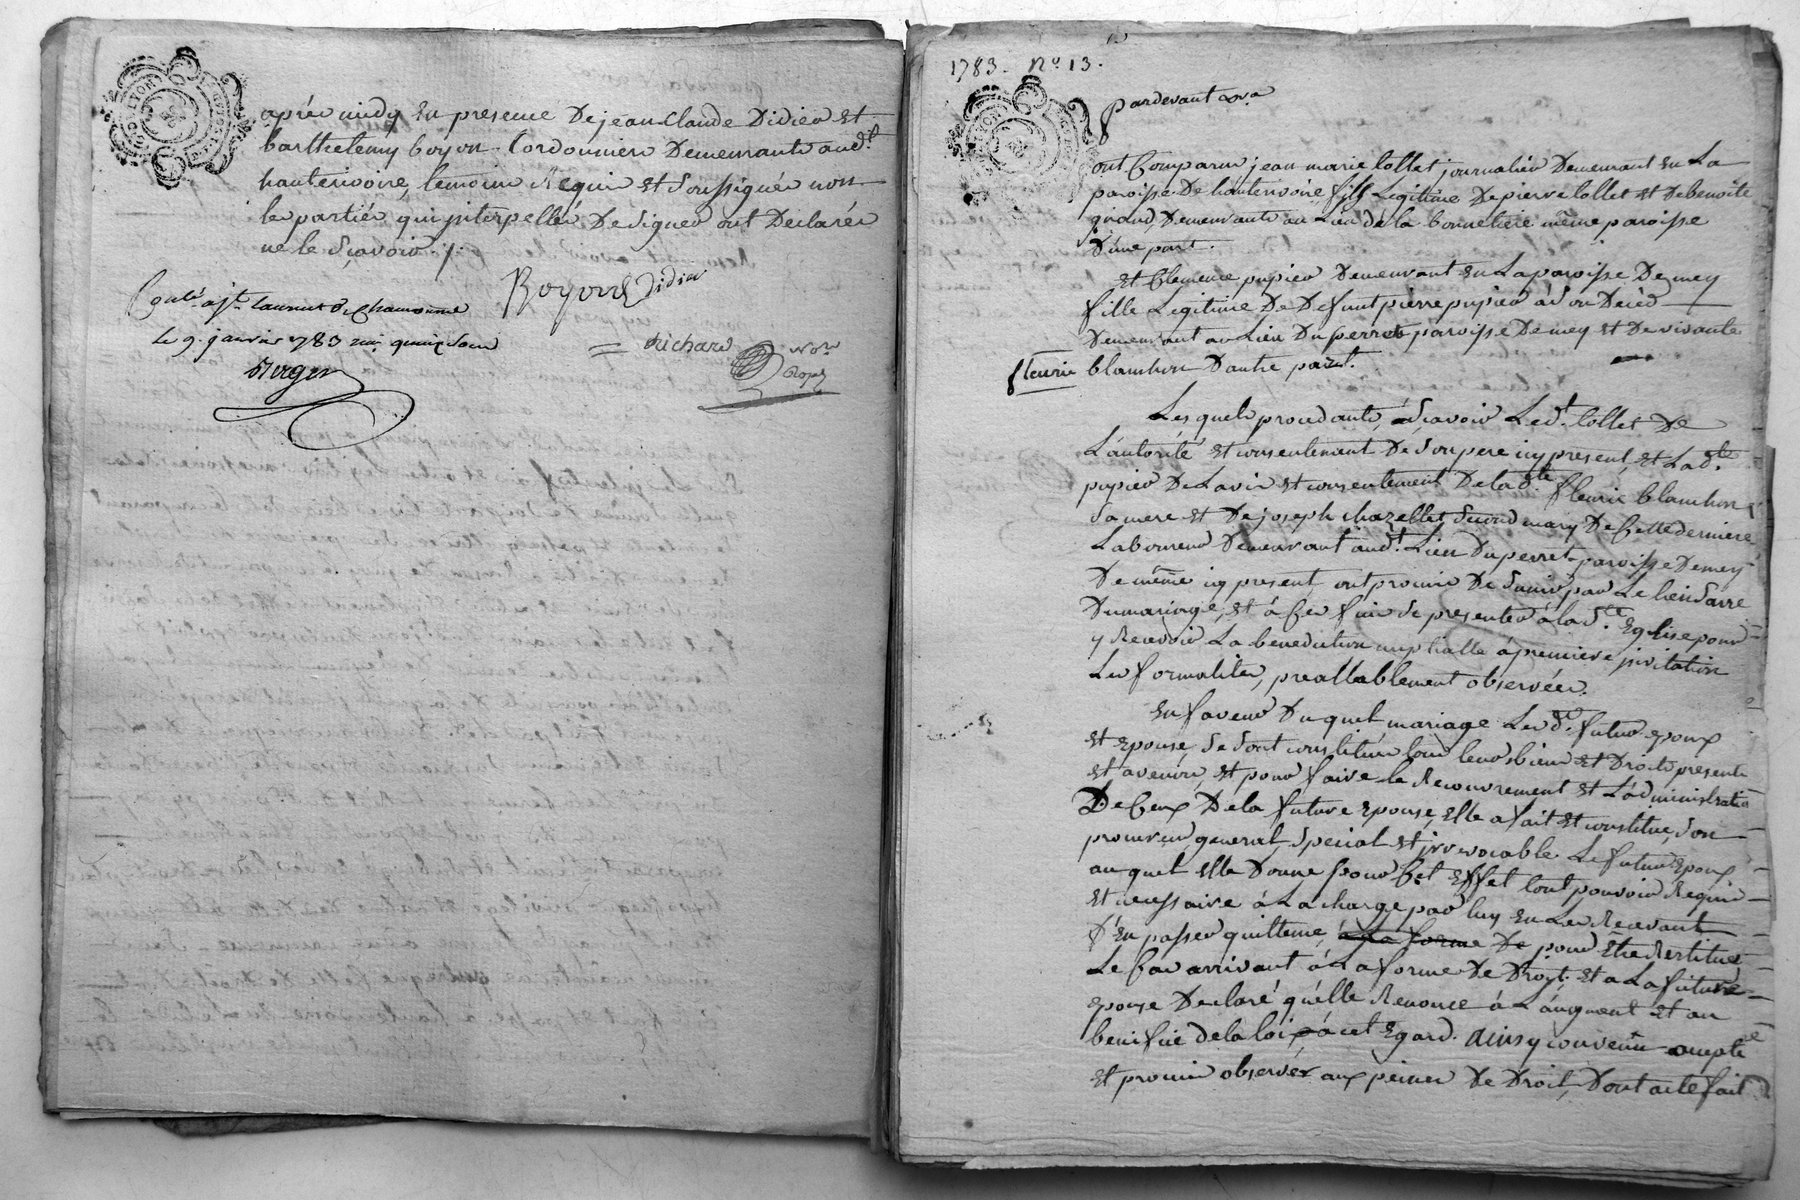 après midy en presence De jean Claude Didier et
barthelemy boyon Cordonniers Demeurants aud.t
hauterivoire, temoins Requis et Soussignés non
les parties, qui interpellés De signer ont Declarés
ne le sçavoir ./.
Boyon Didier
Con.lé à St. Laurent De Chamousset
le 9. janvier 1783 quinze Sous
Richard no.re
1783. N.o 13.
pardevant
ont Comparus jean marie Collet journalier Demeurant en La
paroisse De hauterivoire fils Legitime De pierre Collet et De benoite
grand, Demeurants au Lieu de la bonnetiere même paroisse
D'une part.
et Clemence pupier Demeurant en La paroisse De mey
fille Legitime De Defunt pierre pupier à Son Decéd
Demeurant au Lieu Du perret paroisse De mey et De vivante
fleurie blanchon D'autre part.
Lesquels procedants, àsçavoir Led.t Collet De
L'autorité et consentement De Son pere icy present, et Lad.te
pupier De L'avis et consentement De lad.te fleurie blanchon
Sa mere et De joseph chazellet Second mary De Cette derniere
Laboureur Demeurant aud.t Lieu Du perret paroisse De mey
De même icy present ont promis De S'unir par Le Lien Sacré
Du mariage, et à Ces fins Se presenter à la S.te Eglise pour
y Recevoir La benediction nuptialle à premiere jnvitation
Les formalités, preallablement observées.
En faveur Duquel mariage Lesd.ts futurs epoux
et epouse, Se Sont constitués tous leurs biens et Droits presents
et avenirs, et pour faire le Recouvrement et L'administration
De Ceux De la future epouse, elle a fait et constitué, Son
procureur general, Special et irrevocable Le futur Epoux
auquel elle Donne pour Cet Effet tout pouvoir Requis
et necessaire à La charge par luy en Les Recevant
D'en passer quittance, à la forme De pour Etre Restitué
Le Cas arrivant à La forme De Droit, et a La future
epouse Declaré qu'elle Renonce à L'augment et au
benefice de la loi à cet Egard. ainsy convenu accepté
et promis observer aux peines De Droit, Dont acte fait